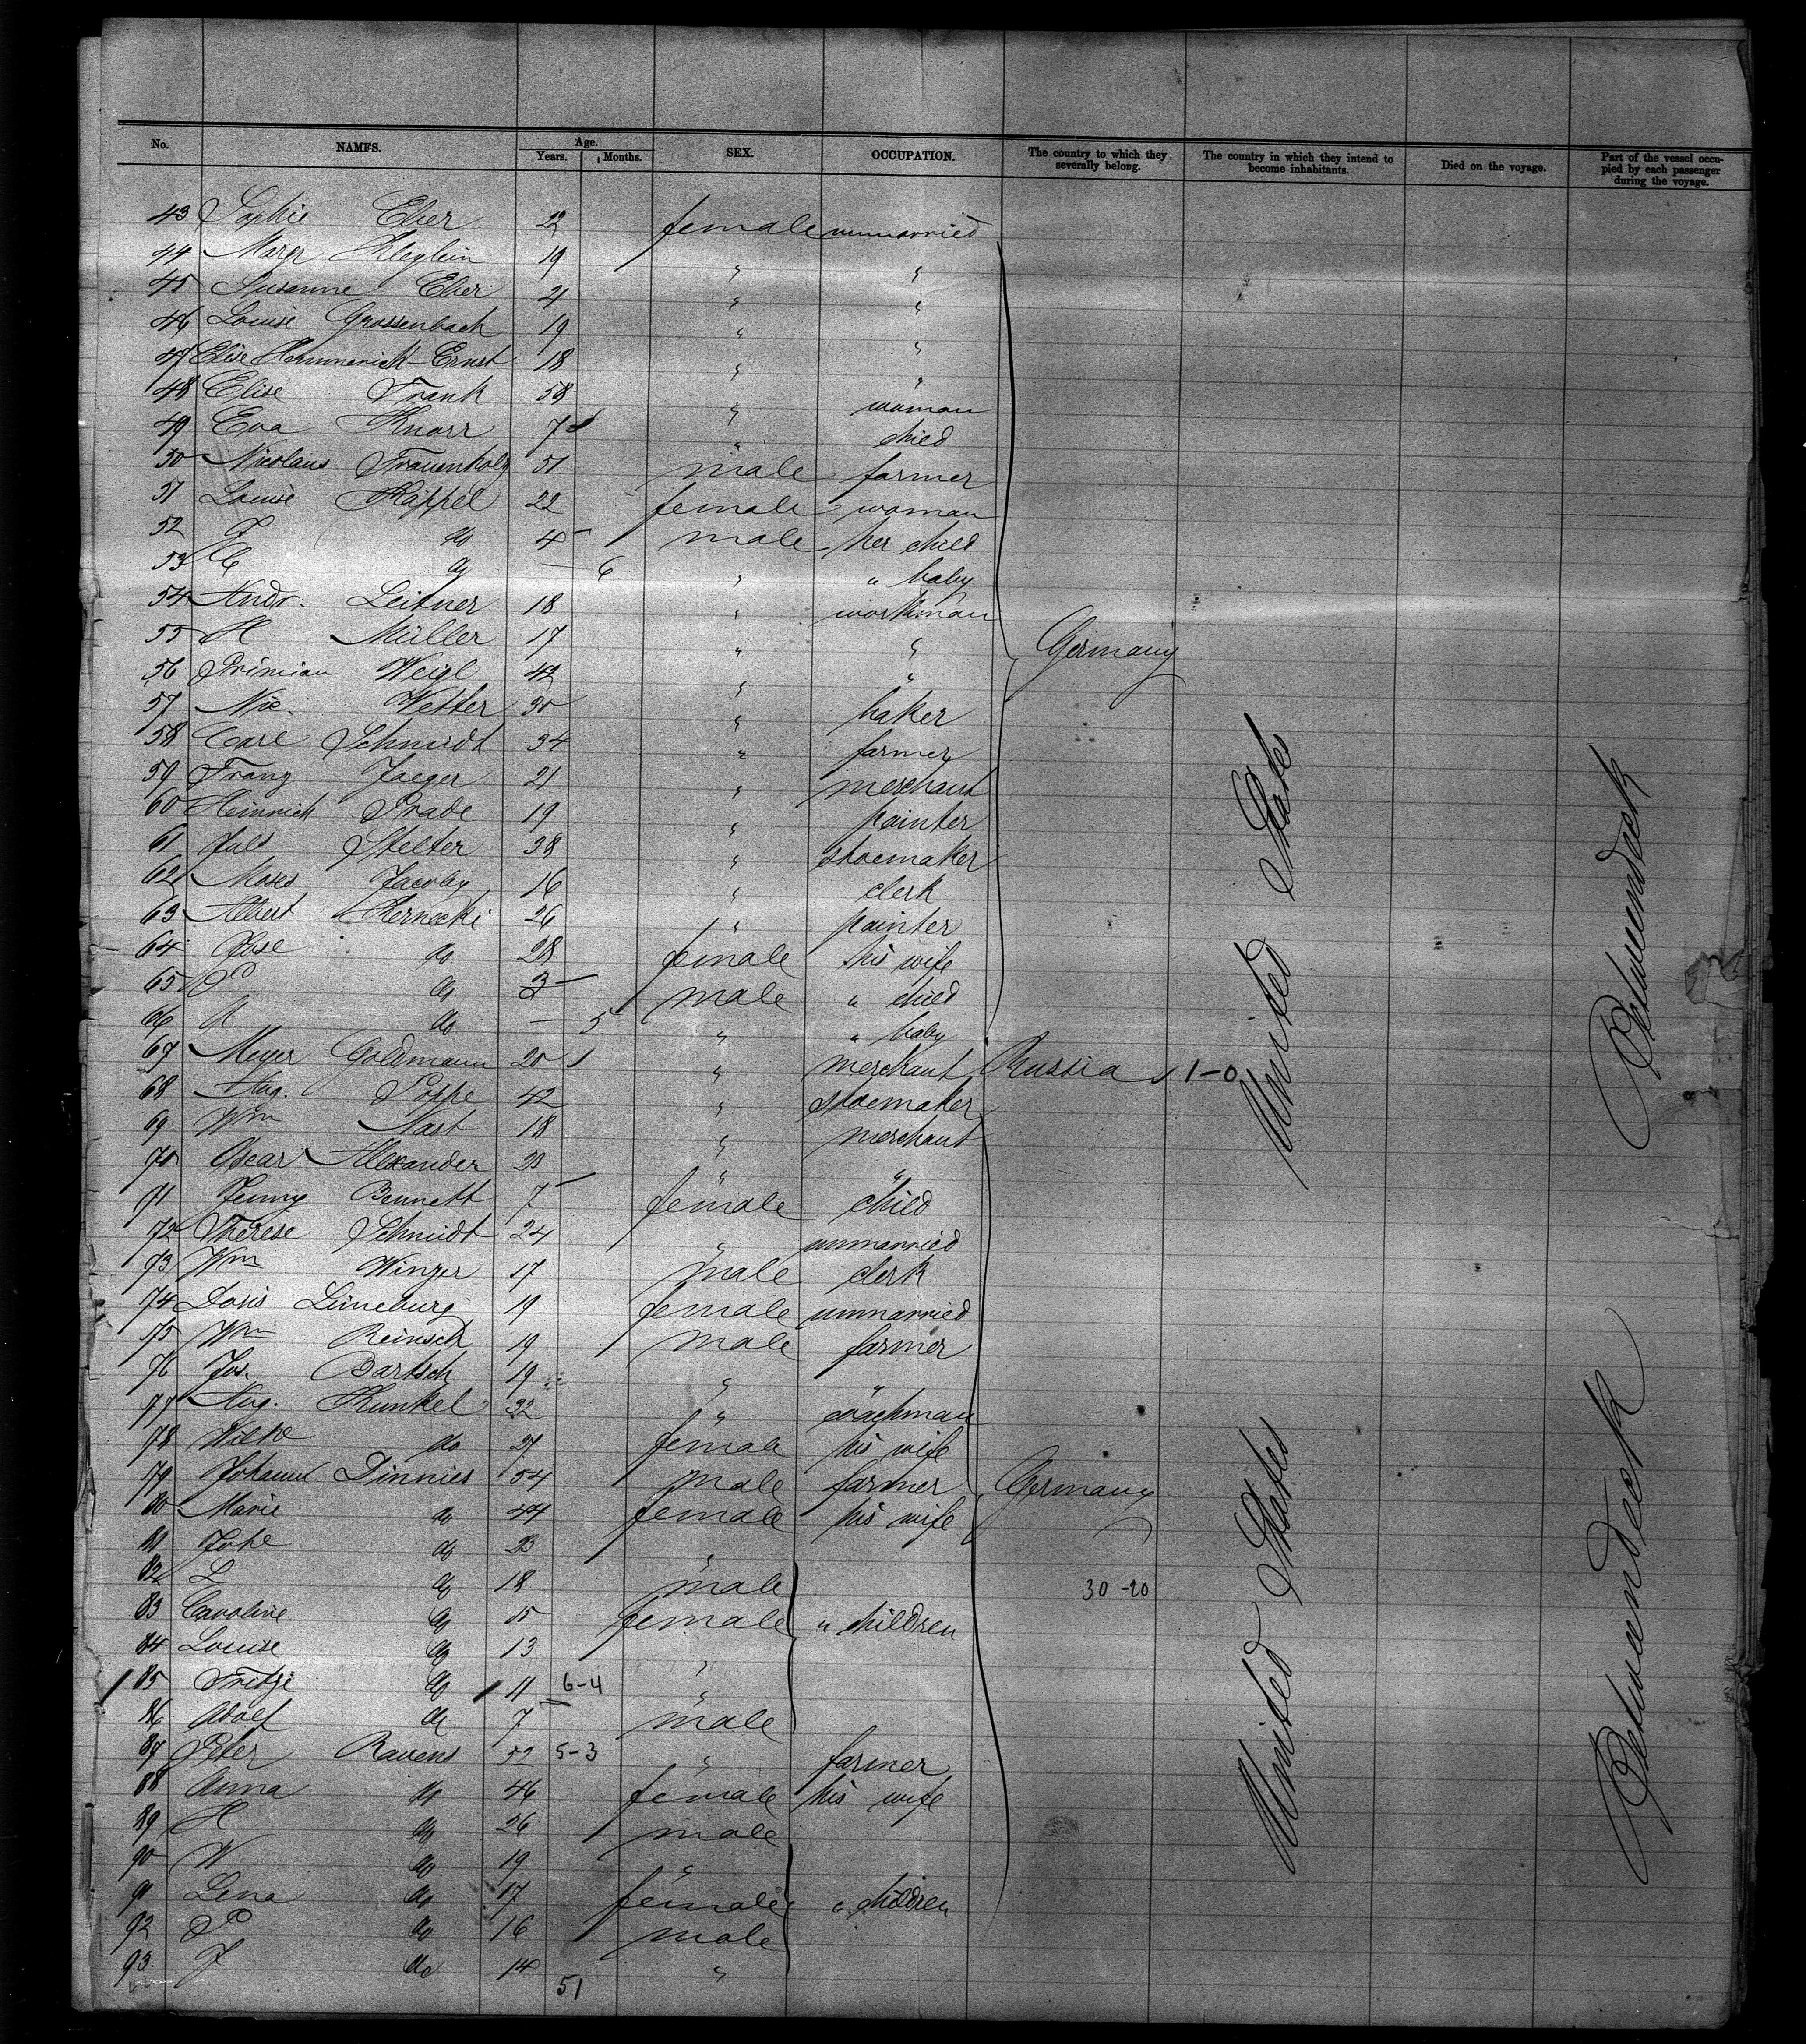 No. NAMES. Age. Years. Months. SEX. OCCUPATION. The country to which they severally belong. The country in which they intend to become inhabitants. Died on the voyage. Part of the vessel occupied by each passenger during the voyage.
43 Sophie Eber 22 female unmarried
44 Margr 19 " "
45 Susanne Eber 21 " "
46 Louise Grossenbach 19 " "
47 Elise Hammerich-Ernst 18 " "
48 Elise Frank 58 " woman
49 Eva Knorr 7 " child
50 Nicolaus Frauenholz 51 male farmer
51 Louise Käppel 22 female woman
52 F do 4 male her child
53 C do — 6 " " baby
54 Andr. Leitner 18 " workman
55 H Müller 17 " "
56 Primian Weigl 42 " "
57 Nic. Vetter 30 " baker
Germany
58 Carl Schmidt 34 " farmer
59 Franz Jaeger 21 " merchant
60 Heinrich Prade 19 " painter
61 Juls Stelter 38 " shoemaker
62 Moses Jacoby 16 " clerk
63 Albert Kernecki 26 " painter
64 do 28 female his wife
65 P do 3 male " child
66 R do — 5 " " baby
67 Meyer Goldmann 20 " merchant Russia 1-0
68 Aug. Poppe 42 " shoemaker
69 Wm Nast 18 " merchant
70 Oscar Alexander 23 " "
71 Jenny Bennett 7 female child
72 Therese Schmidt 24 " unmarried
73 Wm Winzer 17 male clerk
74 Doris Lüneburg 19 female unmarried
75 Wm Reinsch 19 male farmer
76 Jos. Bartsch 19 " "
77 Aug. Kunkel 32 " coachman
78 Wilhe do 27 female his wife
79 Johann Dinnies 54 male farmer Germany
80 Marie do 44 female his wife
81 Johe do 23 "
82 L do 18 male 30-20
83 Caroline do 15 female " children
84 Louise do 13 "
85 Fritze do 11 6-4 "
86 Adolf do 7 male
87 Peter Ravens 52 5-3 " farmer
88 Anna do 46 female his wife
89 H do 26 male
90 W do 19 "
91 Lena do 17 female " children
92 P do 16 male
93 J do 14 "
51
United States
United States
Betweendeck
Betweendeck